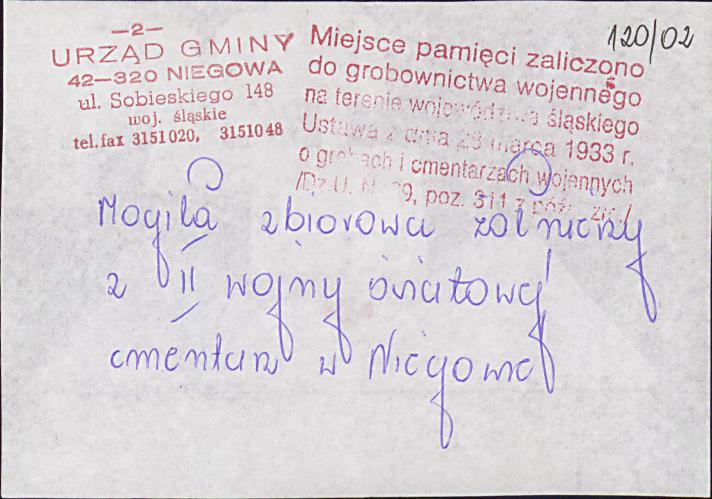 120/02
—2—
URZĄD GMINY
42—320 NIEGOWA
ul. Sobieskiego 148
woj. śląskie
tel.fax 3151020, 3151048
Miejsce pamięci zaliczono
do grobownictwa wojennego
na terenie województwa śląskiego
Ustawa z dnia 28 marca 1933 r.
o grobach i cmentarzach wojennych
/Dz.U. poz. 311 z
Mogiła zbiorowa żołnierzy
z II wojny światowej
cmentarz w Niegowie